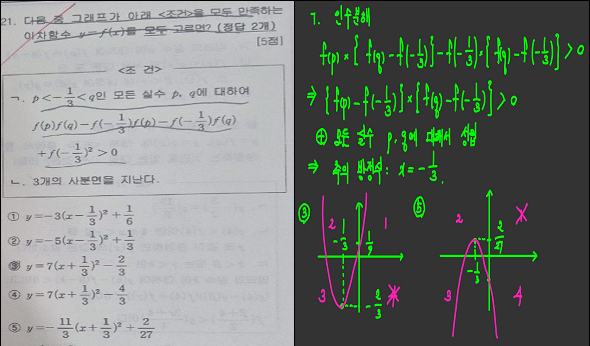 21. 다음 중 그래프가 아래 <조건>을 모두 만족하는
이차함수 y=f(x)를 모두 고르면? (정답 2개)
[5점]
<조 건>
ㄱ. p<-1/3<q인 모든 실수 p, q에 대하여
f(p)f(q)-f(-1/3)f(p)-f(-1/3)f(q)
+f(-1/3)²>0
ㄴ. 3개의 사분면을 지난다.
① y=-3(x-1/3)²+1/6
② y=-5(x-1/3)²+1/3
③ y=7(x+1/3)²-2/3
④ y=7(x+1/3)²-4/3
⑤ y=-11/3(x+1/3)²+2/27
ㄱ. 인수분해
f(p)×{f(q)-f(-1/3)}-f(-1/3)×{f(q)-f(-1/3)}>0
⇒ {f(p)-f(-1/3)}×{f(q)-f(-1/3)}>0
⊕ 모든 실수 p, q에 대해서 성립
⇒ 축의 방정식: x=-1/3.
③
2
-1/3
1/9
1
3
-2/3
⑤
2
2/27
-1/3
3
4